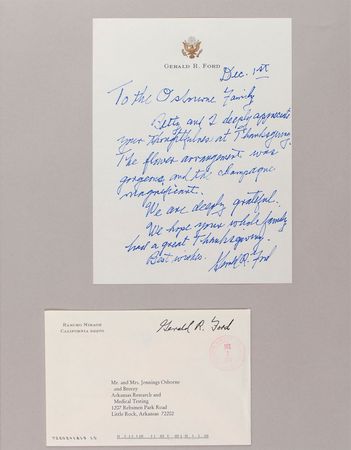 GERALD R. FORD
Dec. 1st
To the Osborne Family
Betty and I deeply appreciate
your thoughtfulness at Thanksgiving.
The flower arrangement was
gorgeous and the champagne
magnificent.
We are deeply grateful.
We hope your whole family
had a great Thanksgiving.
Best wishes.
Gerald R. Ford
RANCHO MIRAGE
CALIFORNIA
Gerald R. Ford
Mr. and Mrs. Jennings Osborne
and Breezy
Arkansas Research and
Medical Testing
1207 Rebsmen Park Road
Little Rock, Arkansas 72202